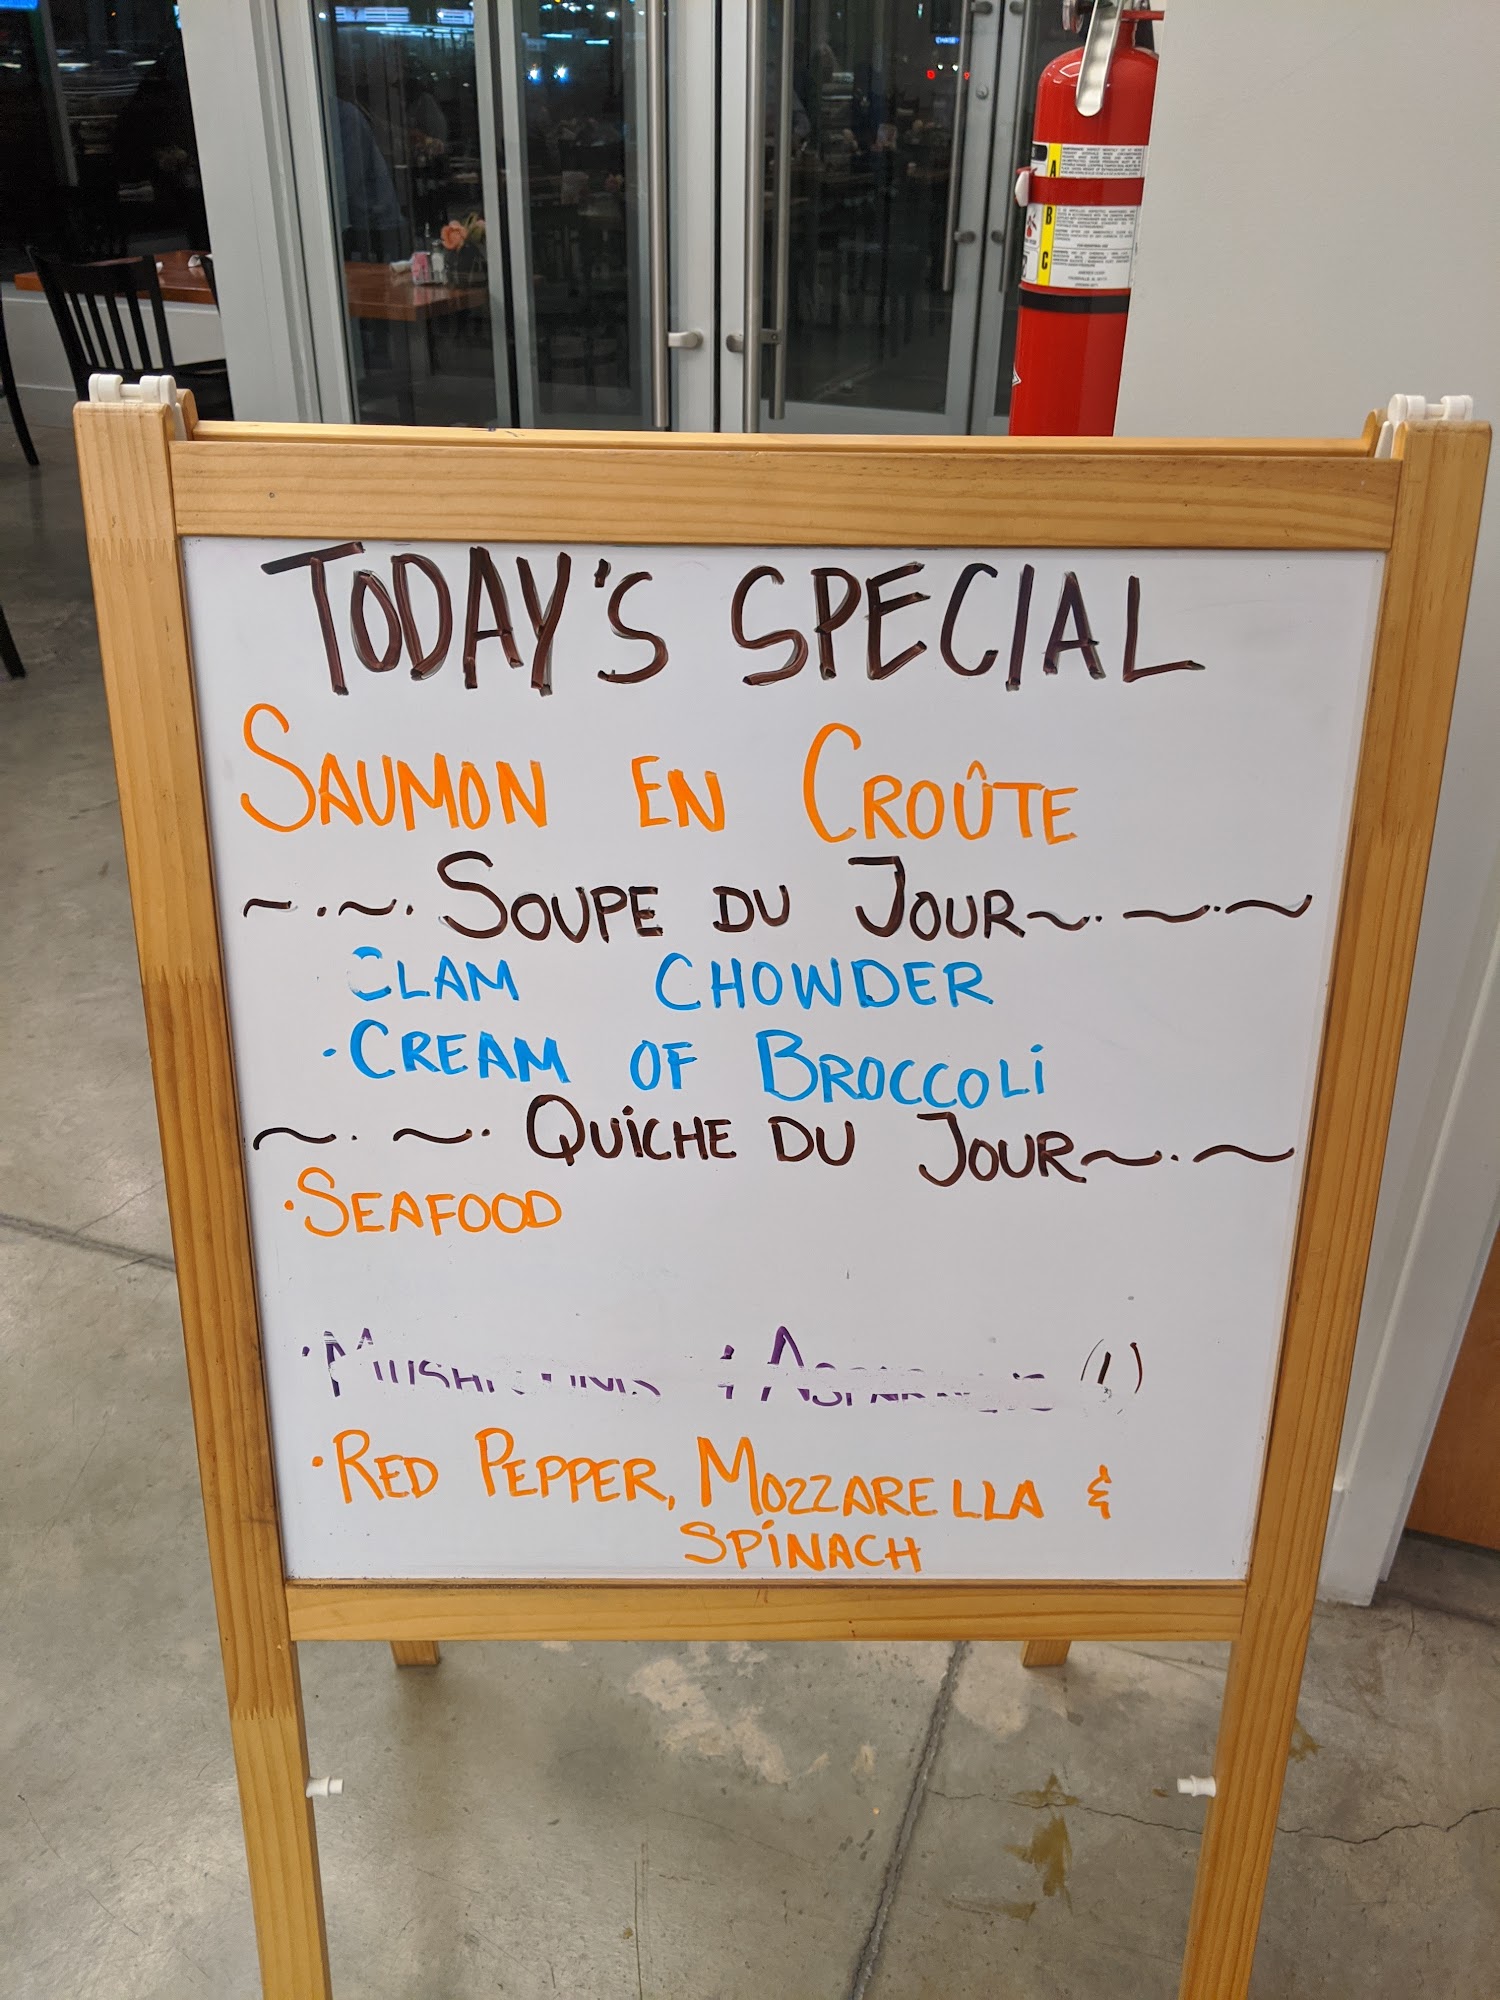 TODAY'S SPECIAL
SAUMON EN CROÛTE
~.~. SOUPE DU JOUR ~.~.~
CLAM CHOWDER
·CREAM OF BROCCOLI
~.~. QUICHE DU JOUR ~.~
·SEAFOOD
·MUSHROOMS & ASPARAGUS (1)
·RED PEPPER, MOZZARELLA &
SPINACH
A
B
C